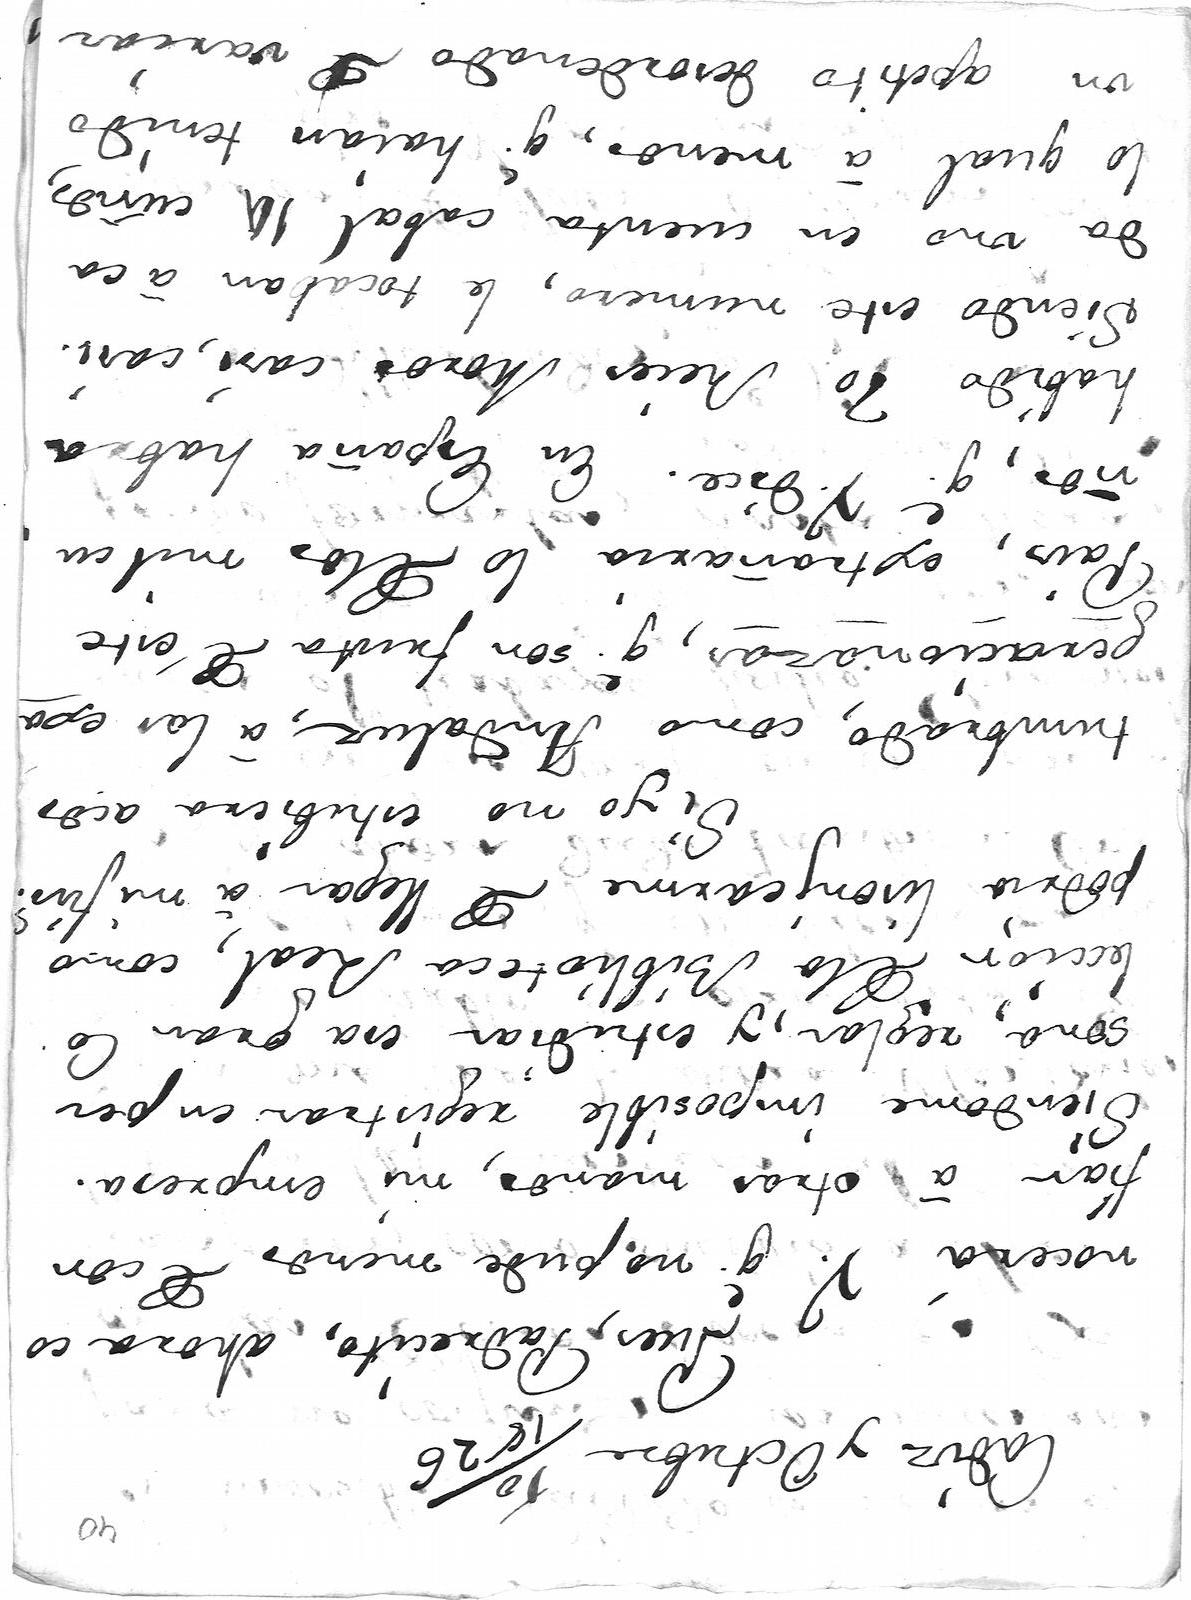 40
Cadiz y Octubre 10/18 26
Pues, Padrecito, ahora co
nocerá V. q.e no pude menos de con
fiar à otras manos, mi empresa.
Siendome imposible registrar en per
sona, reglar, y estudiar esa gran Co
leccion dela Biblioteca Real, como
podria lisonjearme de llegar à mi fin?
Si yo no estubiera acos
tumbrado, como Andaluz, à las exa
geracionazas, q.e son fruta de este
Pais, extrañaria lo delos mil cu
ños, q.e V. dice. En España habrá
habido 70 Reies Moros casi, casi.
Siendo este numero, le tocaban à ca
da uno en cuenta cabal 14 cuños,
lo qual à menos, q.e haian tenido
un apetito desordenado de variar